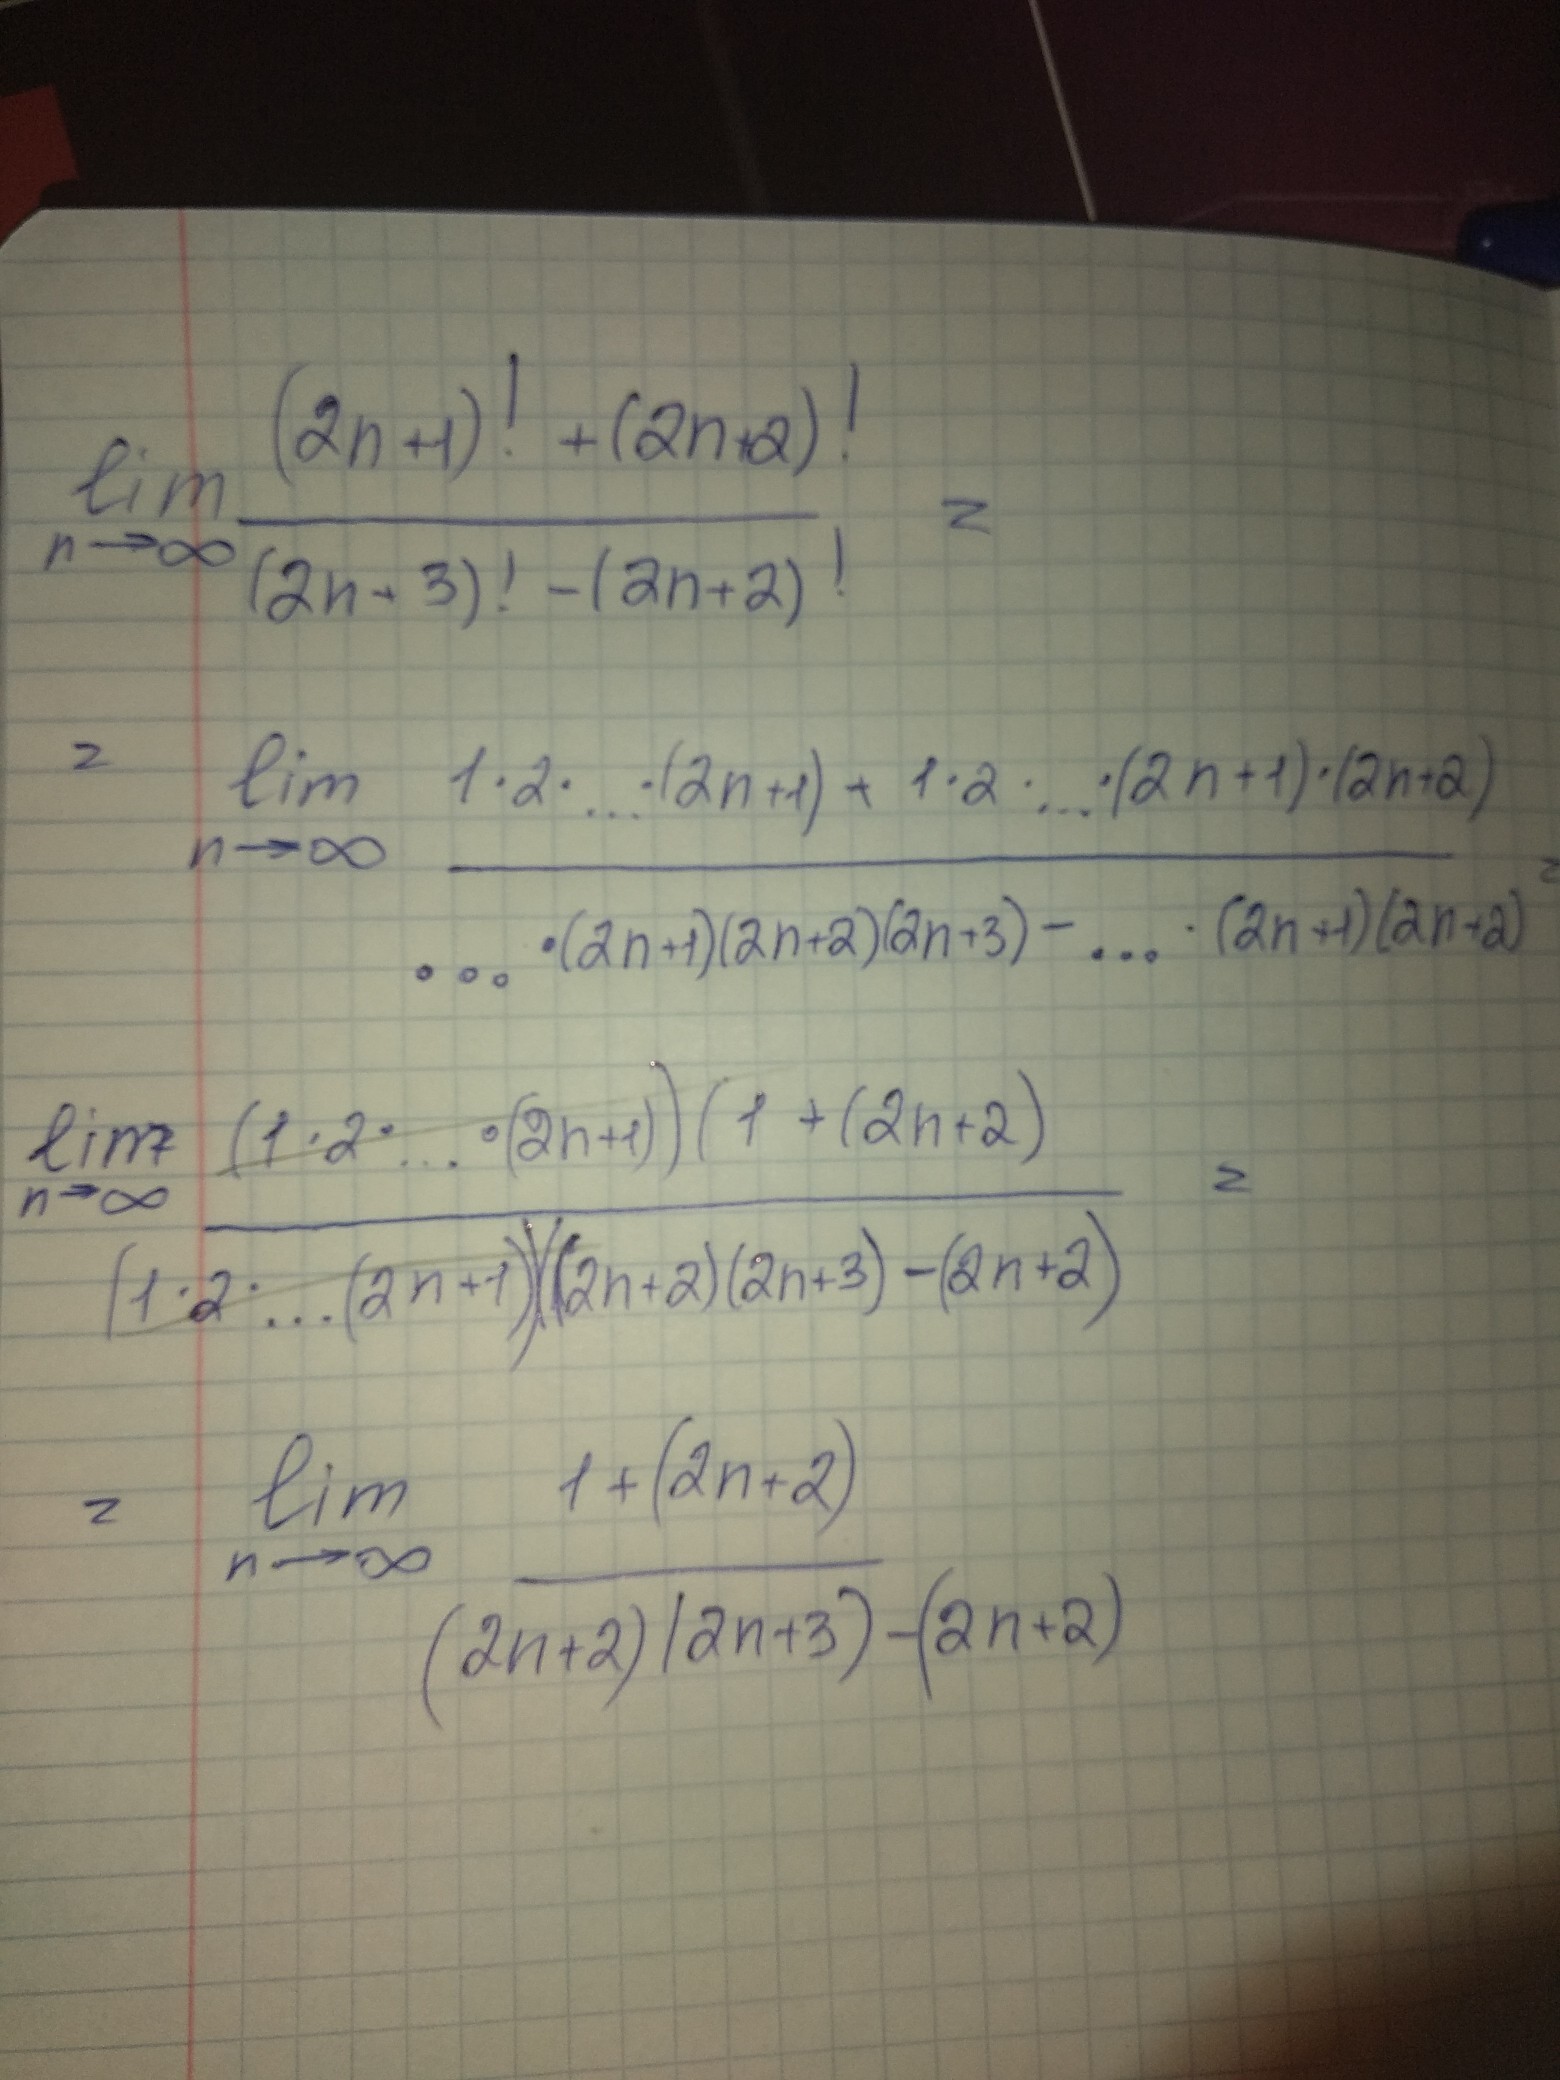 lim n→∞ ((2n+1)! + (2n+2)!) / ((2n+3)! - (2n+2)!) =
= lim n→∞ (1·2·...·(2n+1) + 1·2·...·(2n+1)·(2n+2)) / (...·(2n+1)(2n+2)(2n+3) - ...·(2n+1)(2n+2)) =
lim n→∞ ((1·2·...·(2n+1))(1 + (2n+2)) / ((1·2·...(2n+1))((2n+2)(2n+3) - (2n+2)) =
= lim n→∞ (1 + (2n+2)) / ((2n+2)(2n+3) - (2n+2))